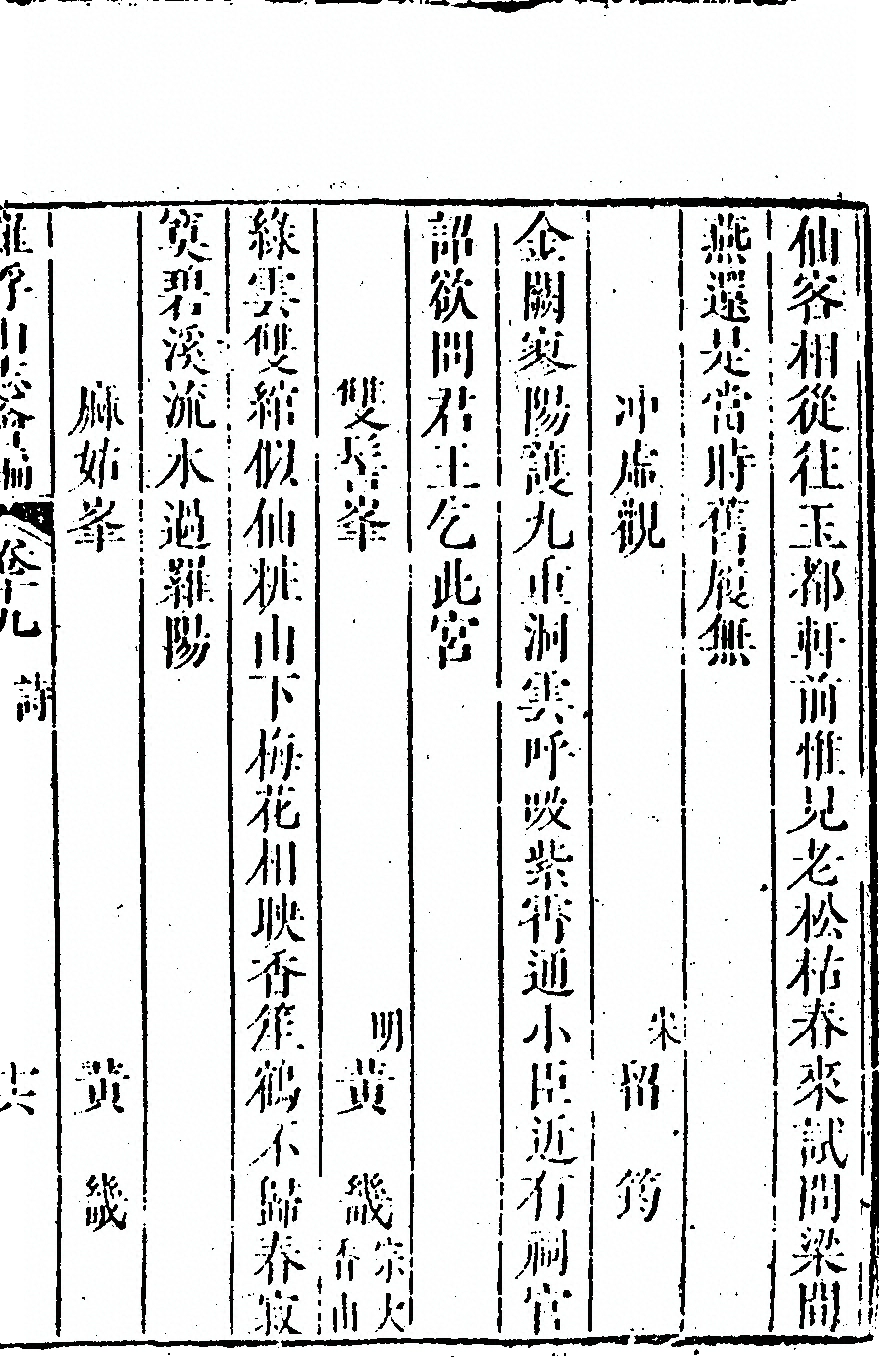 仙客相從往玉都軒前惟見老松枯春來試問梁間
燕還是當時舊屐無
冲虛觀 宋 留 筠
金闕寒陽護九重洞雲呼吸紫霄通小臣近有祠官
詔欲問君王乞此宮
雙髻峯 明 黃 畿 宗大 香山
綠雲雙綰似仙粧山下梅花相映香笙鶴不歸春寂
寞碧溪流水過羅陽
麻姑峯 黃 畿
羅浮山志會編 卷十九 詩